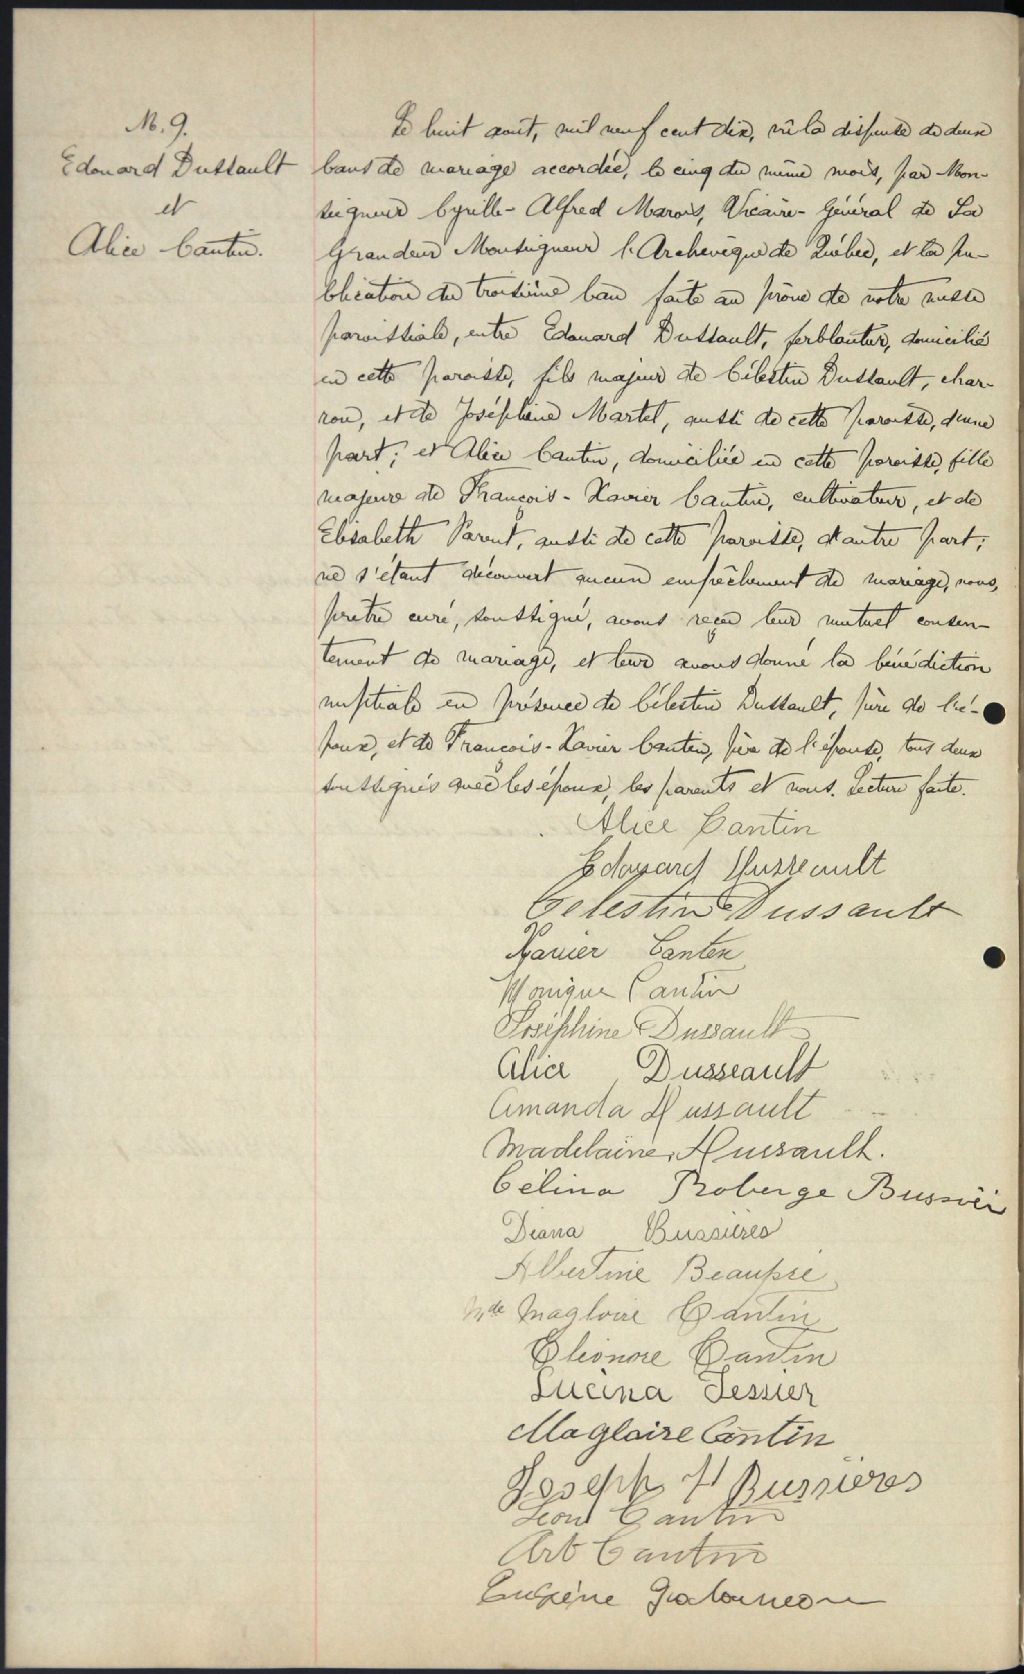 M. 9.
Edouard Dussault
et
Alice Cantin.
Le huit août, mil neuf cent dix, vu la dispense de deux
bans de mariage accordée, le cinq du même mois, par Mon-
seigneur Cyrille-Alfred Marois, Vicaire-Général de Sa
Grandeur Monseigneur l'Archevêque de Québec, et la pu-
blication du troisième ban faite au prône de notre messe
paroissiale, entre Edouard Dussault, ferblantier, domicilié
en cette paroisse, fils majeur de Célestin Dussault, char-
ron, et de Joséphine Martel, aussi de cette paroisse, d'une
part; et Alice Cantin, domiciliée en cette paroisse, fille
majeure de François-Xavier Cantin, cultivateur, et de
Elisabeth Parent, aussi de cette paroisse, d'autre part;
ne s'étant découvert aucun empêchement de mariage, nous,
prêtre curé, soussigné, avons reçu leur mutuel consen-
tement de mariage, et leur avons donné la bénédiction
nuptiale en présence de Célestin Dussault, père de l'é-
poux, et de François-Xavier Cantin, père de l'épouse, tous deux
soussignés avec les époux, les parents et nous. Lecture faite.
Alice Cantin
Edouard Dusseault
Celestin Dussault
Xavier Canten
Monique Cantin
Joséphine Dussault
Alice Dusseault
Amanda Dussault
Madelaine Dussault.
Célina Roberge Bussièr
Diana Bussières
Albertine Beaupré
Mde Magloire Cantin
Eléonore Cantin
Lucina Tessier
Magloire Cantin
Joseph H Bussières
Léon Cantin
Art Cantin
Eugène